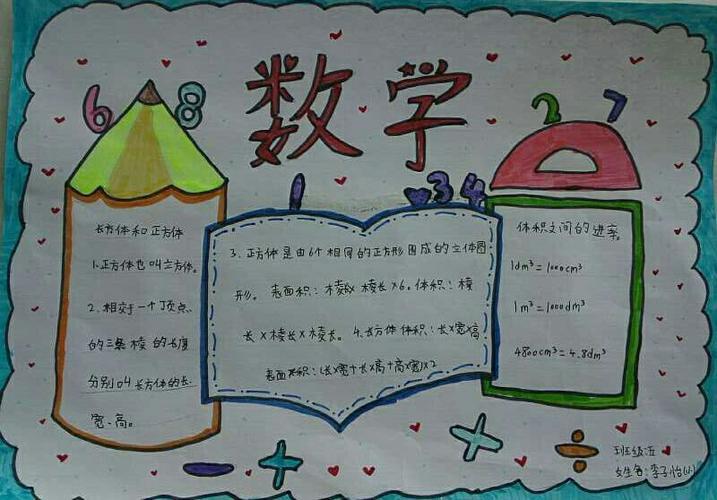 数学
6 8
2 7
1
3 4
长方体和正方体
1.正方体也叫立方体。
2.相交于一个顶点
的三条棱的长度
分别叫长方体的长.
宽、高。
3.正方体是由6个相同的正方形围成的立体图
形。表面积:棱长×棱长×6。体积:棱
长×棱长×棱长。4.长方体体积:长×宽×高
表面积:(长×宽+长×高+高×宽)×2
体积之间的进率。
1dm³=1000cm³
1m³=1000dm³
4800cm³=4.8dm³
- + × ÷
班级:五
姓名:李子怡